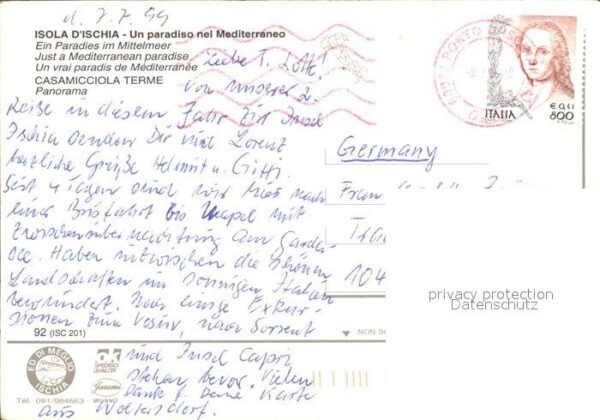 d. 7.7.99
ISOLA D'ISCHIA - Un paradiso nel Mediterraneo
Ein Paradies im Mittelmeer
Just a Mediterranean paradise
Un vrai paradis de Méditerranée
CASAMICCIOLA TERME
Panorama
Liebe T. Lotte!
Von unserer 2.
Reise in diesem Jahr zur Insel
Ischia senden Dir und Lorenz
herzliche Grüße Helmut u. Gitti.
Seit 4 Tagen sind wir hier nach
einer Busfahrt bis Neapel mit
Zwischenübernachtung am Garda-
see. Haben inzwischen die schönen
Landschaften im sonnigen Italien
bewundert. Noch einige Exkur-
sionen zum Vesuv, nach Sorrent
und Insel Capri
stehen bevor. Vielen
Dank f. Deine Karte
aus Woltersdorf.
92 (ISC 201)
ED. DI MEGLIO
ISCHIA
Tel. 081/984663
SPEDIRE
QUALITÀ
MILANO
PORTO
ITALIA
€ 0,41
800
Germany
Frau
104
NON
privacy protection
Datenschutz